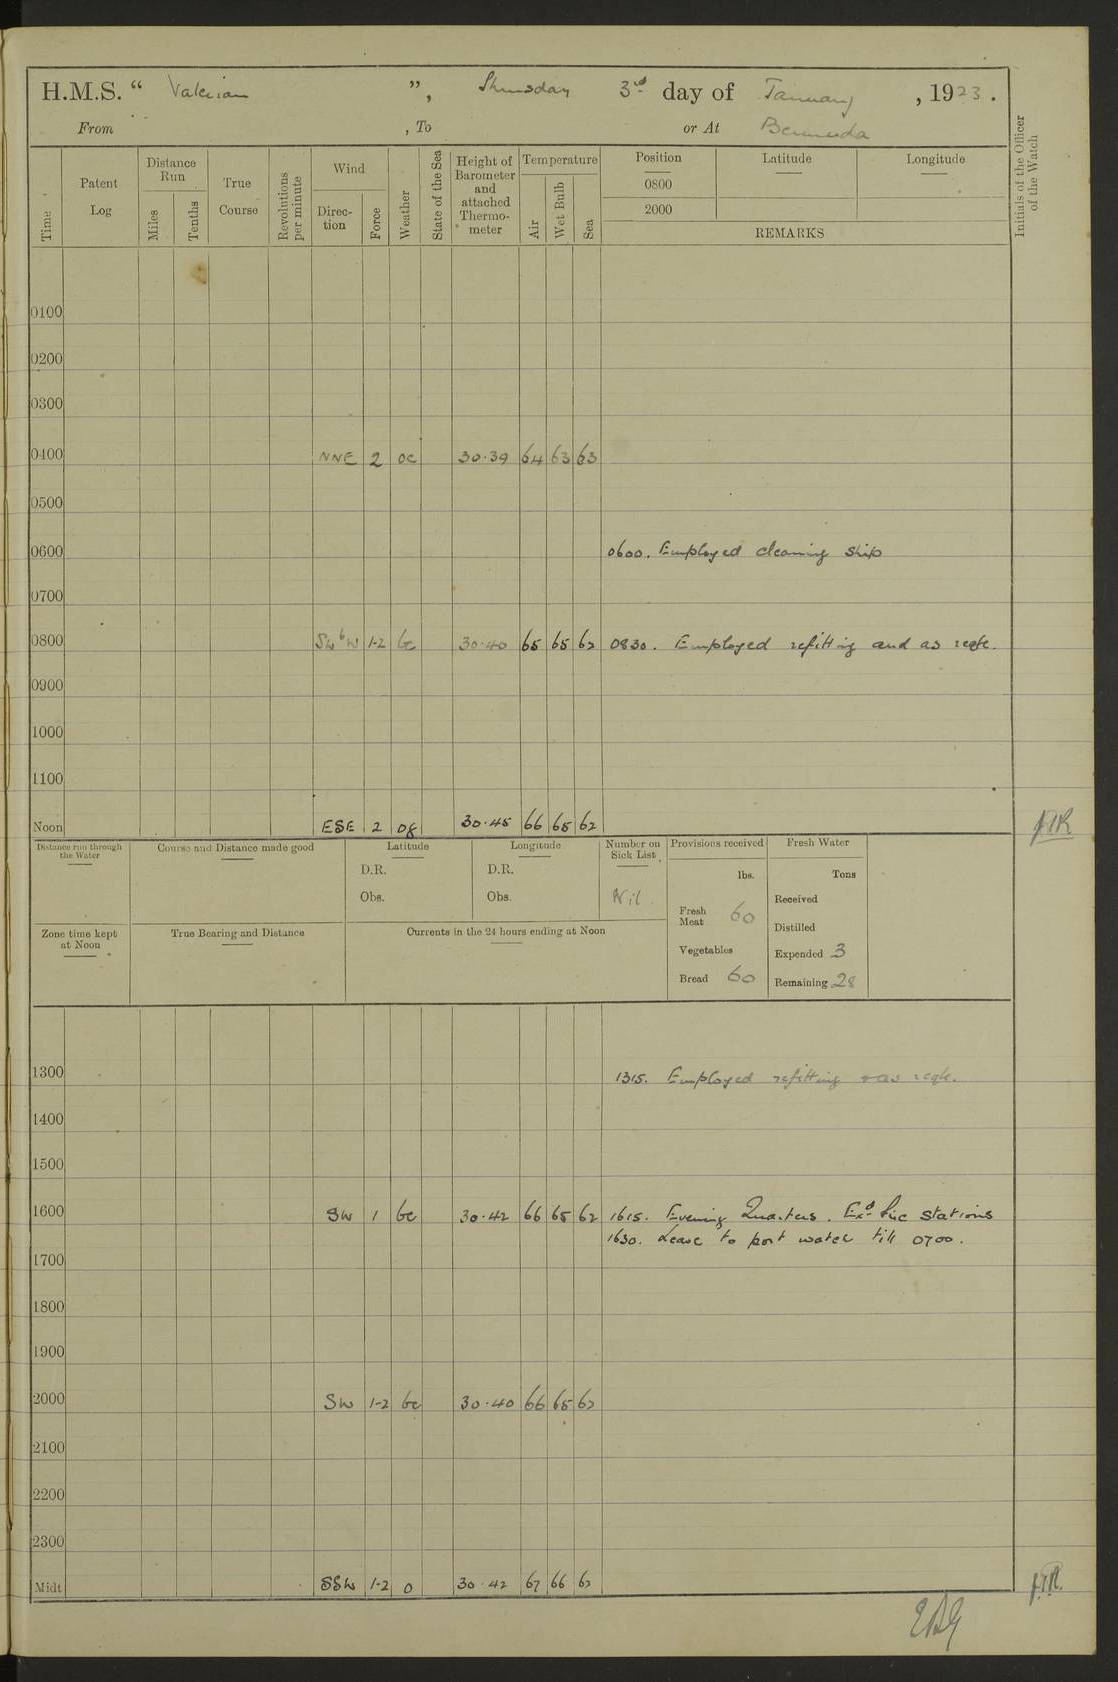 H.M.S. “ Valerian ”, Thursday 3rd day of January , 1923.
From , To or At Bermuda
Time
Patent Log
Distance Run
Miles
Tenths
True Course
Revolutions per minute
Wind
Direc-tion
Force
Weather
State of the Sea
Height of Barometer and attached Thermo-meter
Temperature
Air
Wet Bulb
Sea
Position Latitude Longitude
0800
2000
REMARKS
Initials of the Officer of the Watch
0100
0200
0300
0400 NNE 2 oc 30.39 64 63 63
0500
0600 0600. Employed cleaning ship
0700
0800 SWbW 1-2 bc 30.40 65 65 62 0830. Employed refitting and as reqte.
0900
1000
1100
Noon ESE 2 og 30.45 66 65 62
Distance run through the Water
Course and Distance made good
Latitude
D.R.
Obs.
Longitude
D.R.
Obs.
Number on Sick List
Nil
Provisions received
lbs.
Fresh Meat 60
Vegetables
Bread 60
Fresh Water
Tons
Received
Distilled
Expended 3
Remaining 28
Zone time kept at Noon
True Bearing and Distance
Currents in the 24 hours ending at Noon
1300 1315. Employed refitting & as reqte.
1400
1500
1600 SW 1 bc 30.42 66 65 62 1615. Evening Quarters. Exd fire stations
1630. Leave to port watch till 0700.
1700
1800
1900
2000 SW 1-2 bc 30.40 66 65 62
2100
2200
2300
Midt SSW 1-2 o 30.42 67 66 62